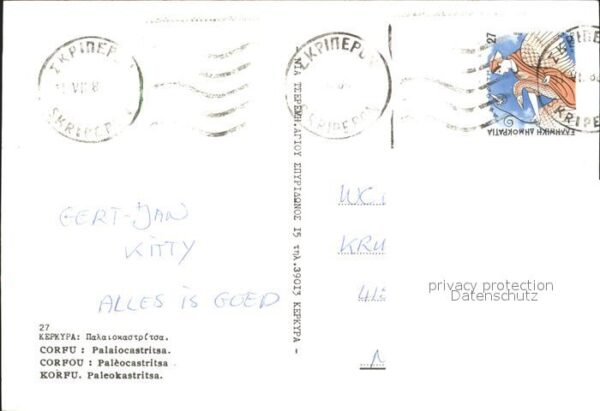 ΣΚΡΙΠΕΡΟΥ
VII
SKRIPERO
ΣΚΡΙΠΕΡΟΥ
SKRIPEROU
27
ΕΛΛΗΝΙΚΗ ΔΗΜΟΚΡΑΤΙΑ
ΤΣΕΡΕΜΗ.ΑΓΙΟΥ ΣΠΥΡΙΔΩΝΟΣ 15 τηλ.39013 ΚΕΡΚΥΡΑ -
GERT-JAN
KITTY
ALLES IS GOED
WC
KRU
privacy protection
Datenschutz
27
ΚΕΡΚΥΡΑ: Παλαιοκαστρίτσα.
CORFU : Palaiocastritsa.
CORFOU : Palèocastritsa
KORFU. Paleokastritsa.